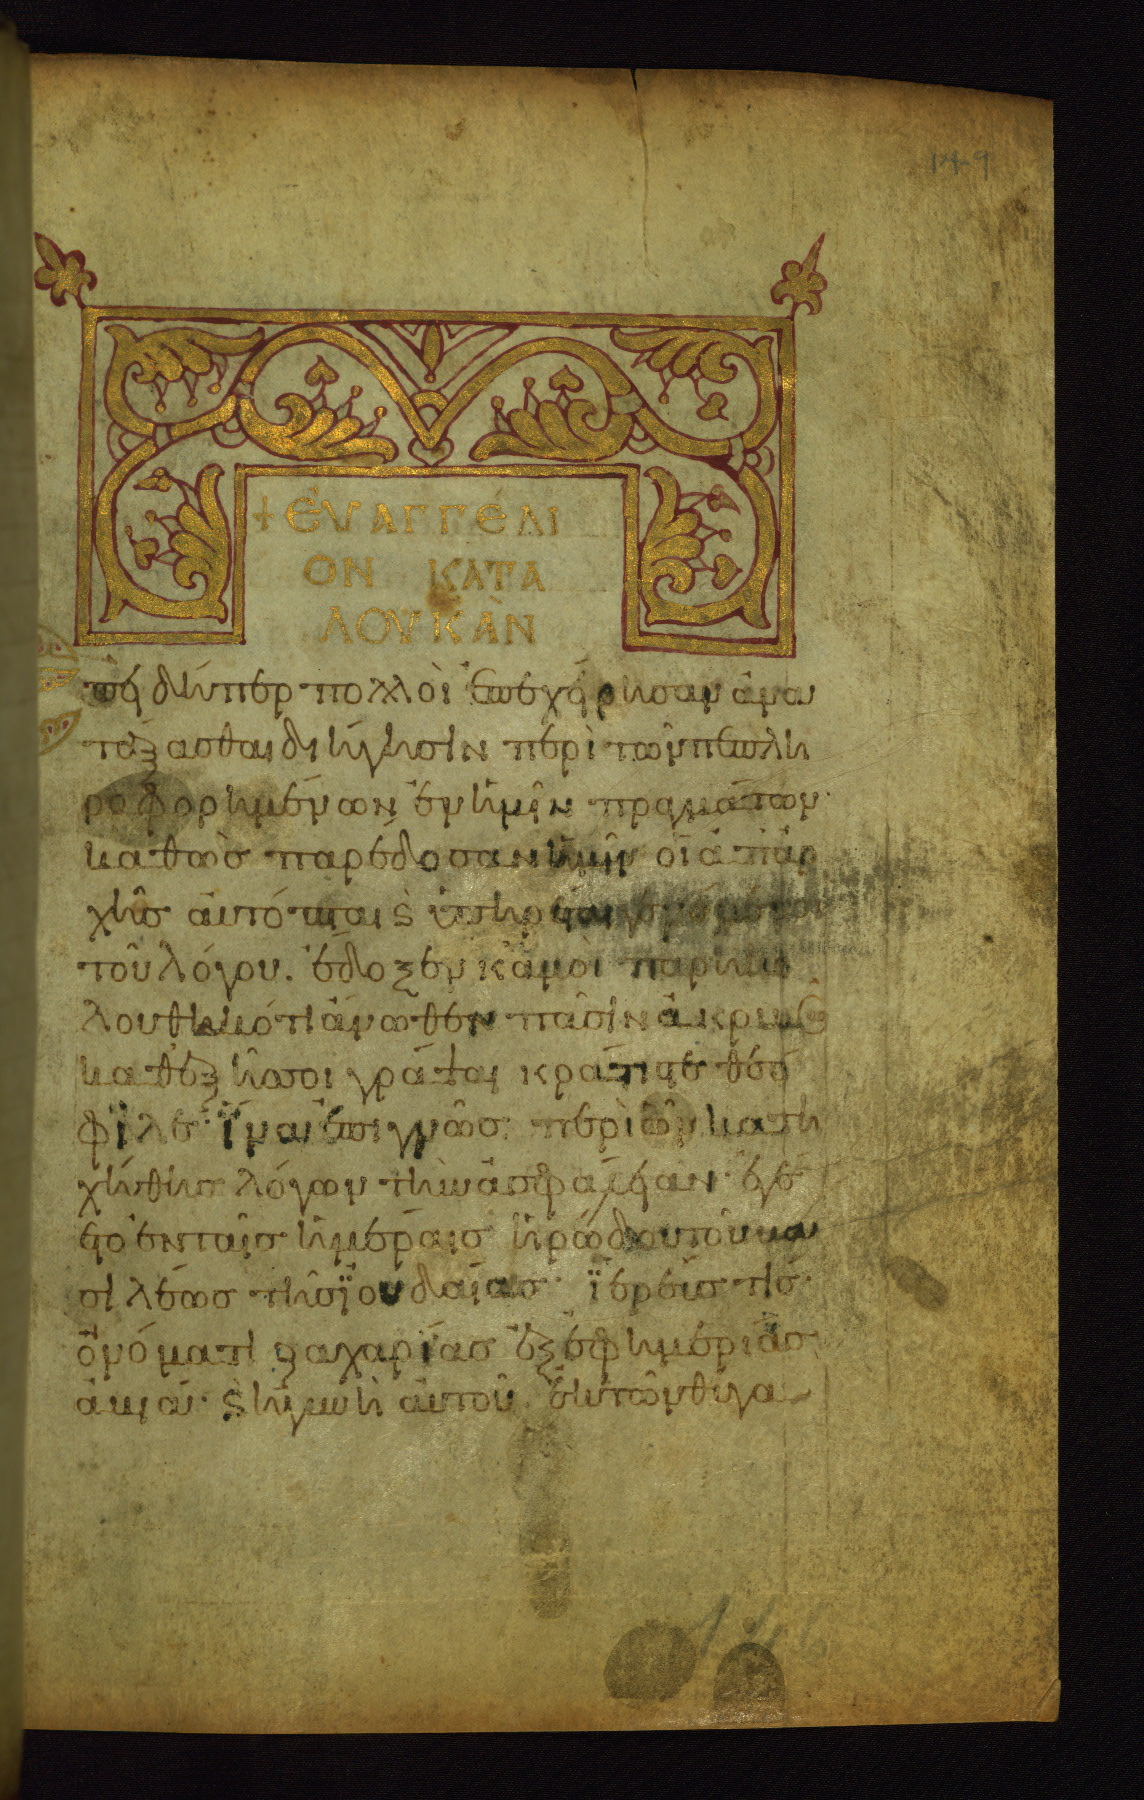 149
+ ΕΥΑΓΓΕΛΙ
ΟΝ ΚΑΤΑ
ΛΟΥΚΑΝ
πειδήπερ πολλοὶ ἐπεχείρησαν ἀνα
τάξασθαι διήγησιν περὶ τῶν πεπλη
ροφορημένων ἐν ἡμῖν πραγμάτων·
καθὼς παρέδοσαν ἡμῖν οἱ ἀπ' ἀρ
χῆς αὐτόπται ϗ ὑπηρέται γενόμενοι
τοῦ λόγου. ἔδοξεν κἀμοὶ παρηκο
λουθηκότι ἄνωθεν πᾶσιν ἀκριβῶς
καθεξῆς σοι γράψαι κράτιστε θεό
φιλε· ἵνα ἐπιγνῶς περὶ ὧν κατη
χήθης λόγων τὴν ἀσφάλειαν· ἐγέ
νετο ἐν ταῖς ἡμέραις ἡρώδου τοῦ βα
σιλέως τῆς ϊουδαίας· ϊερεύς τις
ὀνόματι ζαχαρίας ἐξ ἐφημερίας
ἀβιά· ϗ ἡ γυνὴ αὐτοῦ ἐκ τῶν θυγα